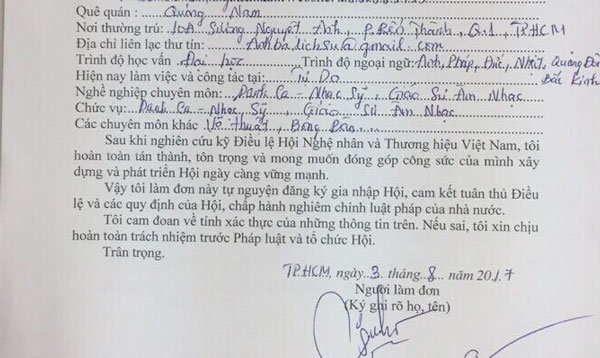 Quê quán : Quảng Nam
Nơi thường trú: 10A Sương Nguyệt Ánh, P. Bến Thành, Q.1, TP.HCM
Địa chỉ liên lạc thư tín: Anhbatichsu@gmail.com
Trình độ học vấn Đại học Trình độ ngoại ngữ: Anh, Pháp, Đức, Nhật, Quảng Đông
Bắc Kinh
Hiện nay làm việc và công tác tại: Tự Do
Nghề nghiệp chuyên môn: Danh Ca - Nhạc Sỹ, Giáo Sư Âm Nhạc
Chức vụ: Danh Ca - Nhạc Sỹ, Giáo Sư Âm Nhạc
Các chuyên môn khác Võ thuật, Bóng Bàn
Sau khi nghiên cứu kỹ Điều lệ Hội Nghệ nhân và Thương hiệu Việt Nam, tôi
hoàn toàn tán thành, tôn trọng và mong muốn đóng góp công sức của mình xây
dựng và phát triển Hội ngày càng vững mạnh.
Vậy tôi làm đơn này tự nguyện đăng ký gia nhập Hội, cam kết tuân thủ Điều
lệ và các quy định của Hội, chấp hành nghiêm chỉnh luật pháp của nhà nước.
Tôi cam đoan về tính xác thực của những thông tin trên. Nếu sai, tôi xin chịu
hoàn toàn trách nhiệm trước Pháp luật và tổ chức Hội.
Trân trọng.
TP.HCM, ngày 3 tháng 8 năm 2017
Người làm đơn
(Ký ghi rõ họ, tên)